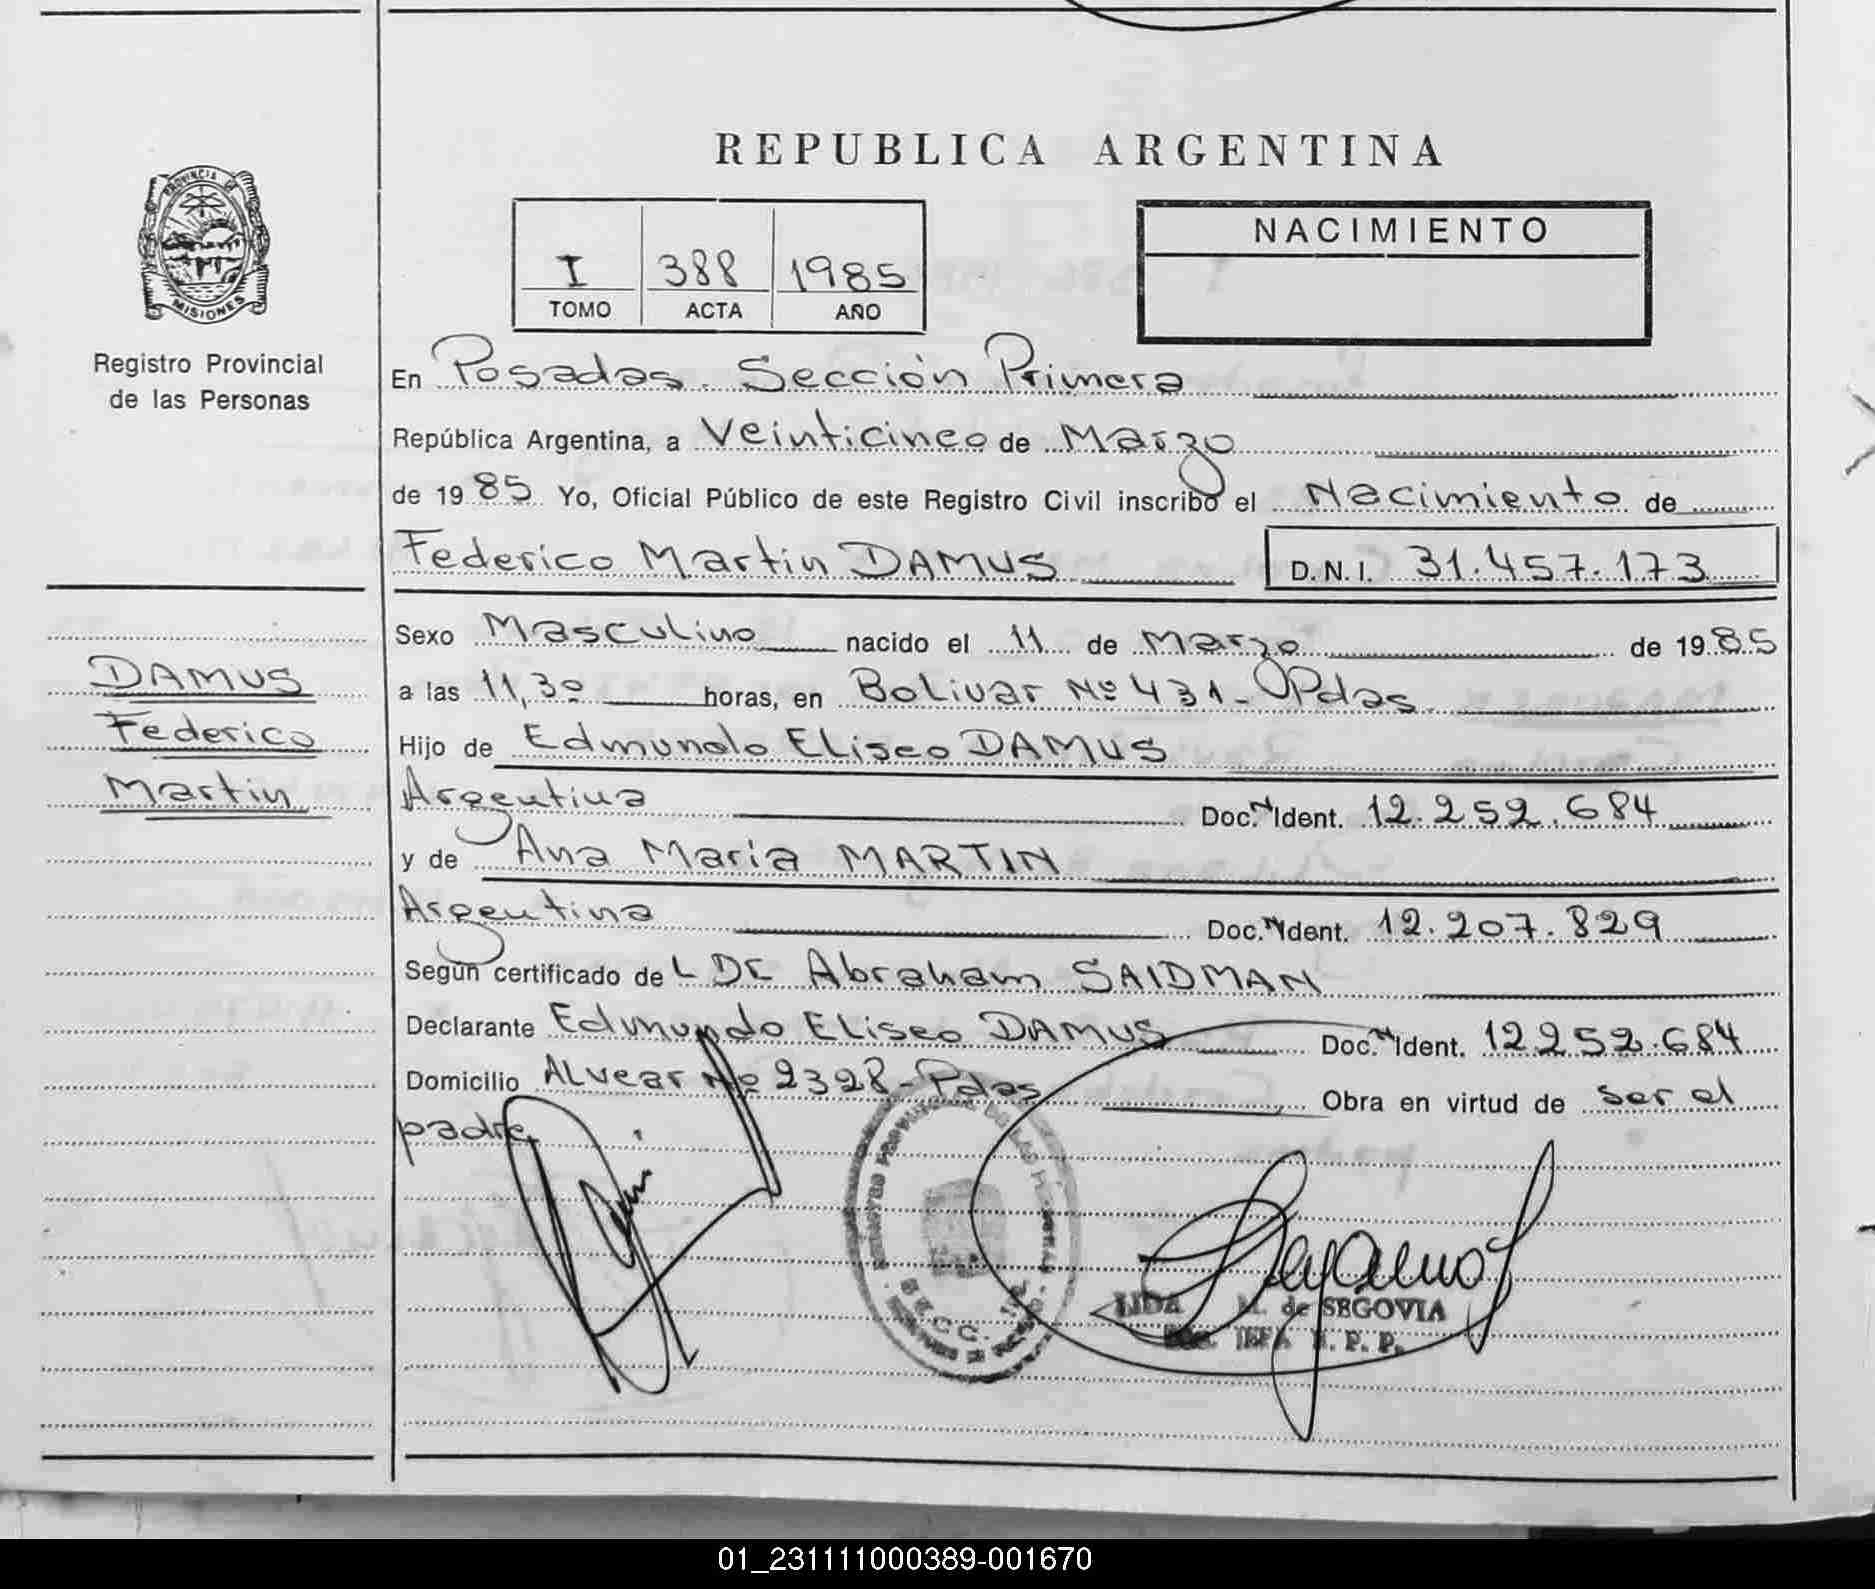 REPUBLICA ARGENTINA
PROVINCIA DE
MISIONES
Registro Provincial
de las Personas
I 388 1985
TOMO ACTA AÑO
NACIMIENTO
En Posadas. Sección Primera
República Argentina, a Veinticinco de Marzo
de 1985 Yo, Oficial Público de este Registro Civil inscribo el Nacimiento de
Federico Martin DAMUS D.N.I. 31.457.173
Sexo Masculino nacido el 11 de Marzo de 1985
a las 11,30 horas, en Bolivar Nº 431- Pdas.
Hijo de Edmundo Eliseo DAMUS
Argentina Doc. Ident. 12.252.684
y de Ana Maria MARTIN
Argentina Doc. Ident. 12.207.829
Según certificado de L Dr Abraham SAIDMAN
Declarante Edmundo Eliseo DAMUS Doc. Ident. 12252.684
Domicilio Alvear Nº 2328-Pdas Obra en virtud de ser el
padre
DAMUS
Federico
Martin
SECC. 1ra
LIDA M. de SEGOVIA
R. P. P.
01_231111000389-001670